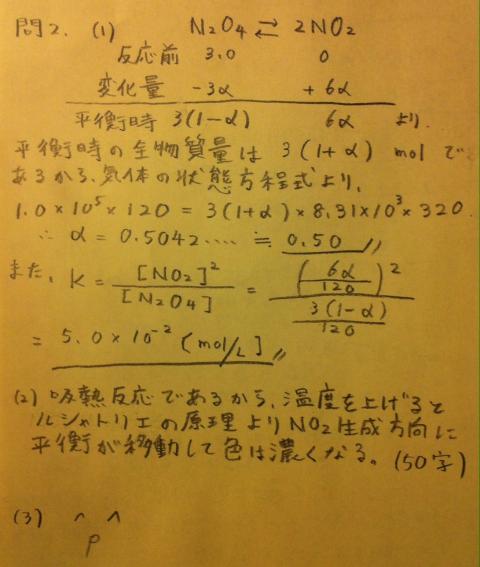 問2. (1) N2O4 ⇄ 2NO2
反応前 3.0 0
変化量 -3α +6α
平衡時 3(1-α) 6α より.
平衡時の全物質量は 3(1+α) mol で
あるから、気体の状態方程式より、
1.0×10⁵×120 = 3(1+α)×8.31×10³×320
∴ α = 0.5042..... ≒ 0.50 〃
また、K = [NO2]² / [N2O4] = (6α/120)² / (3(1-α)/120)
= 5.0×10⁻² [mol/L] 〃
(2) 吸熱反応であるから、温度を上げると
ルシャトリエの原理よりNO2生成方向に
平衡が移動して色は濃くなる。(50字)
(3) ^ ^
p